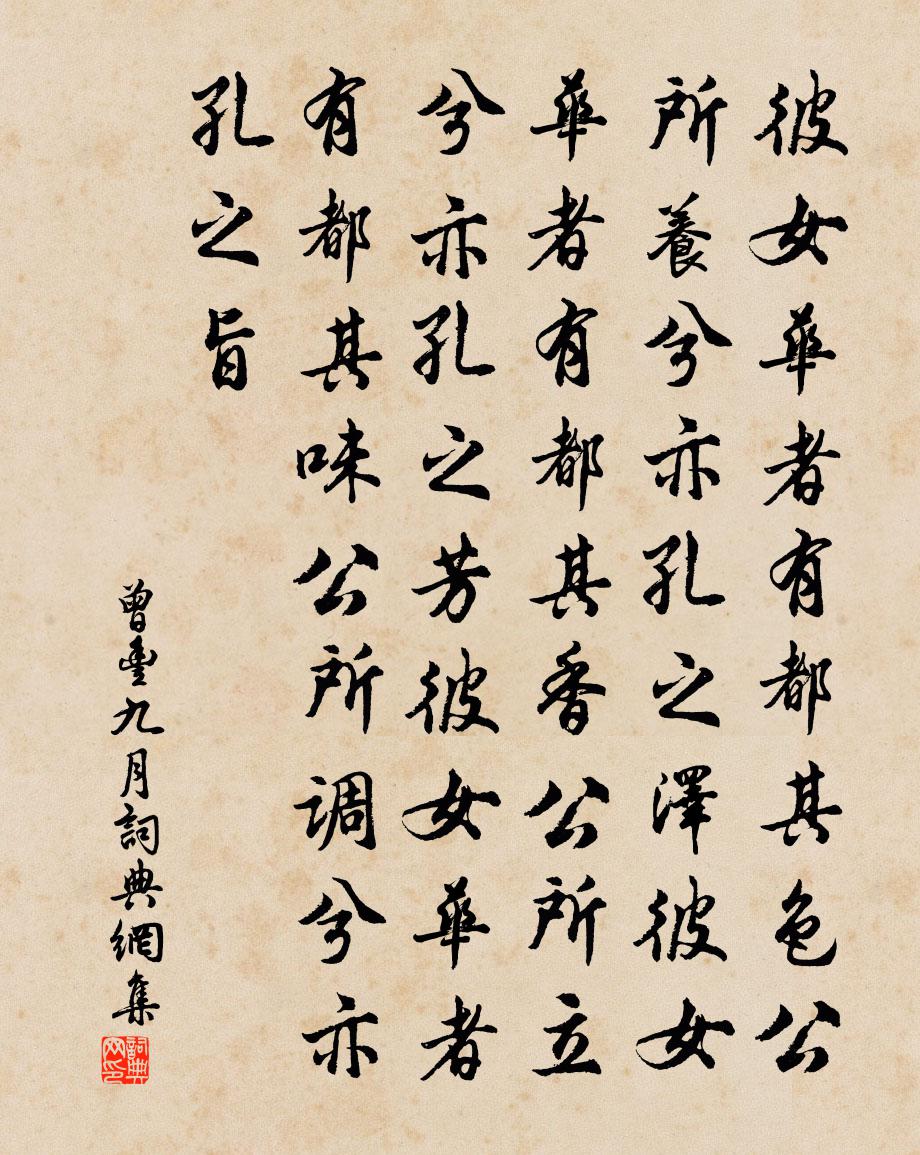 彼女華者有都其色公
所養兮亦孔之澤彼女
華者有都其香公所立
兮亦孔之芳彼女華者
有都其味公所调兮亦
孔之旨
曾豐九月詞典網集
詞典网印